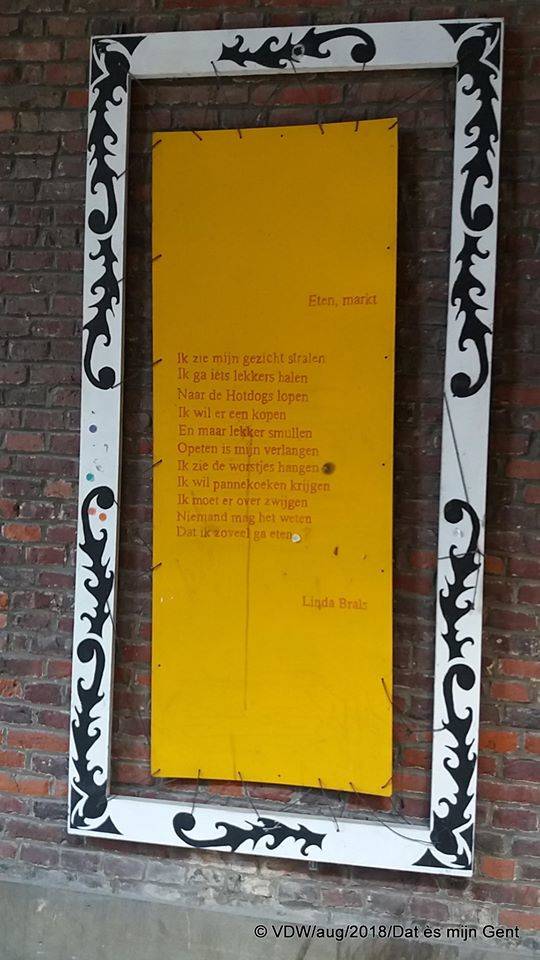 Eten, markt
Ik zie mijn gezicht stralen
Ik ga iets lekkers halen
Naar de Hotdogs lopen
Ik wil er een kopen
En maar lekker smullen
Opeten is mijn verlangen
Ik zie de worstjes hangen
Ik wil pannekoeken krijgen
Ik moet er over zwijgen
Niemand mag het weten
Dat ik zoveel ga eten
Linda Brals
© VDW/aug/2018/Dat ès mijn Gent